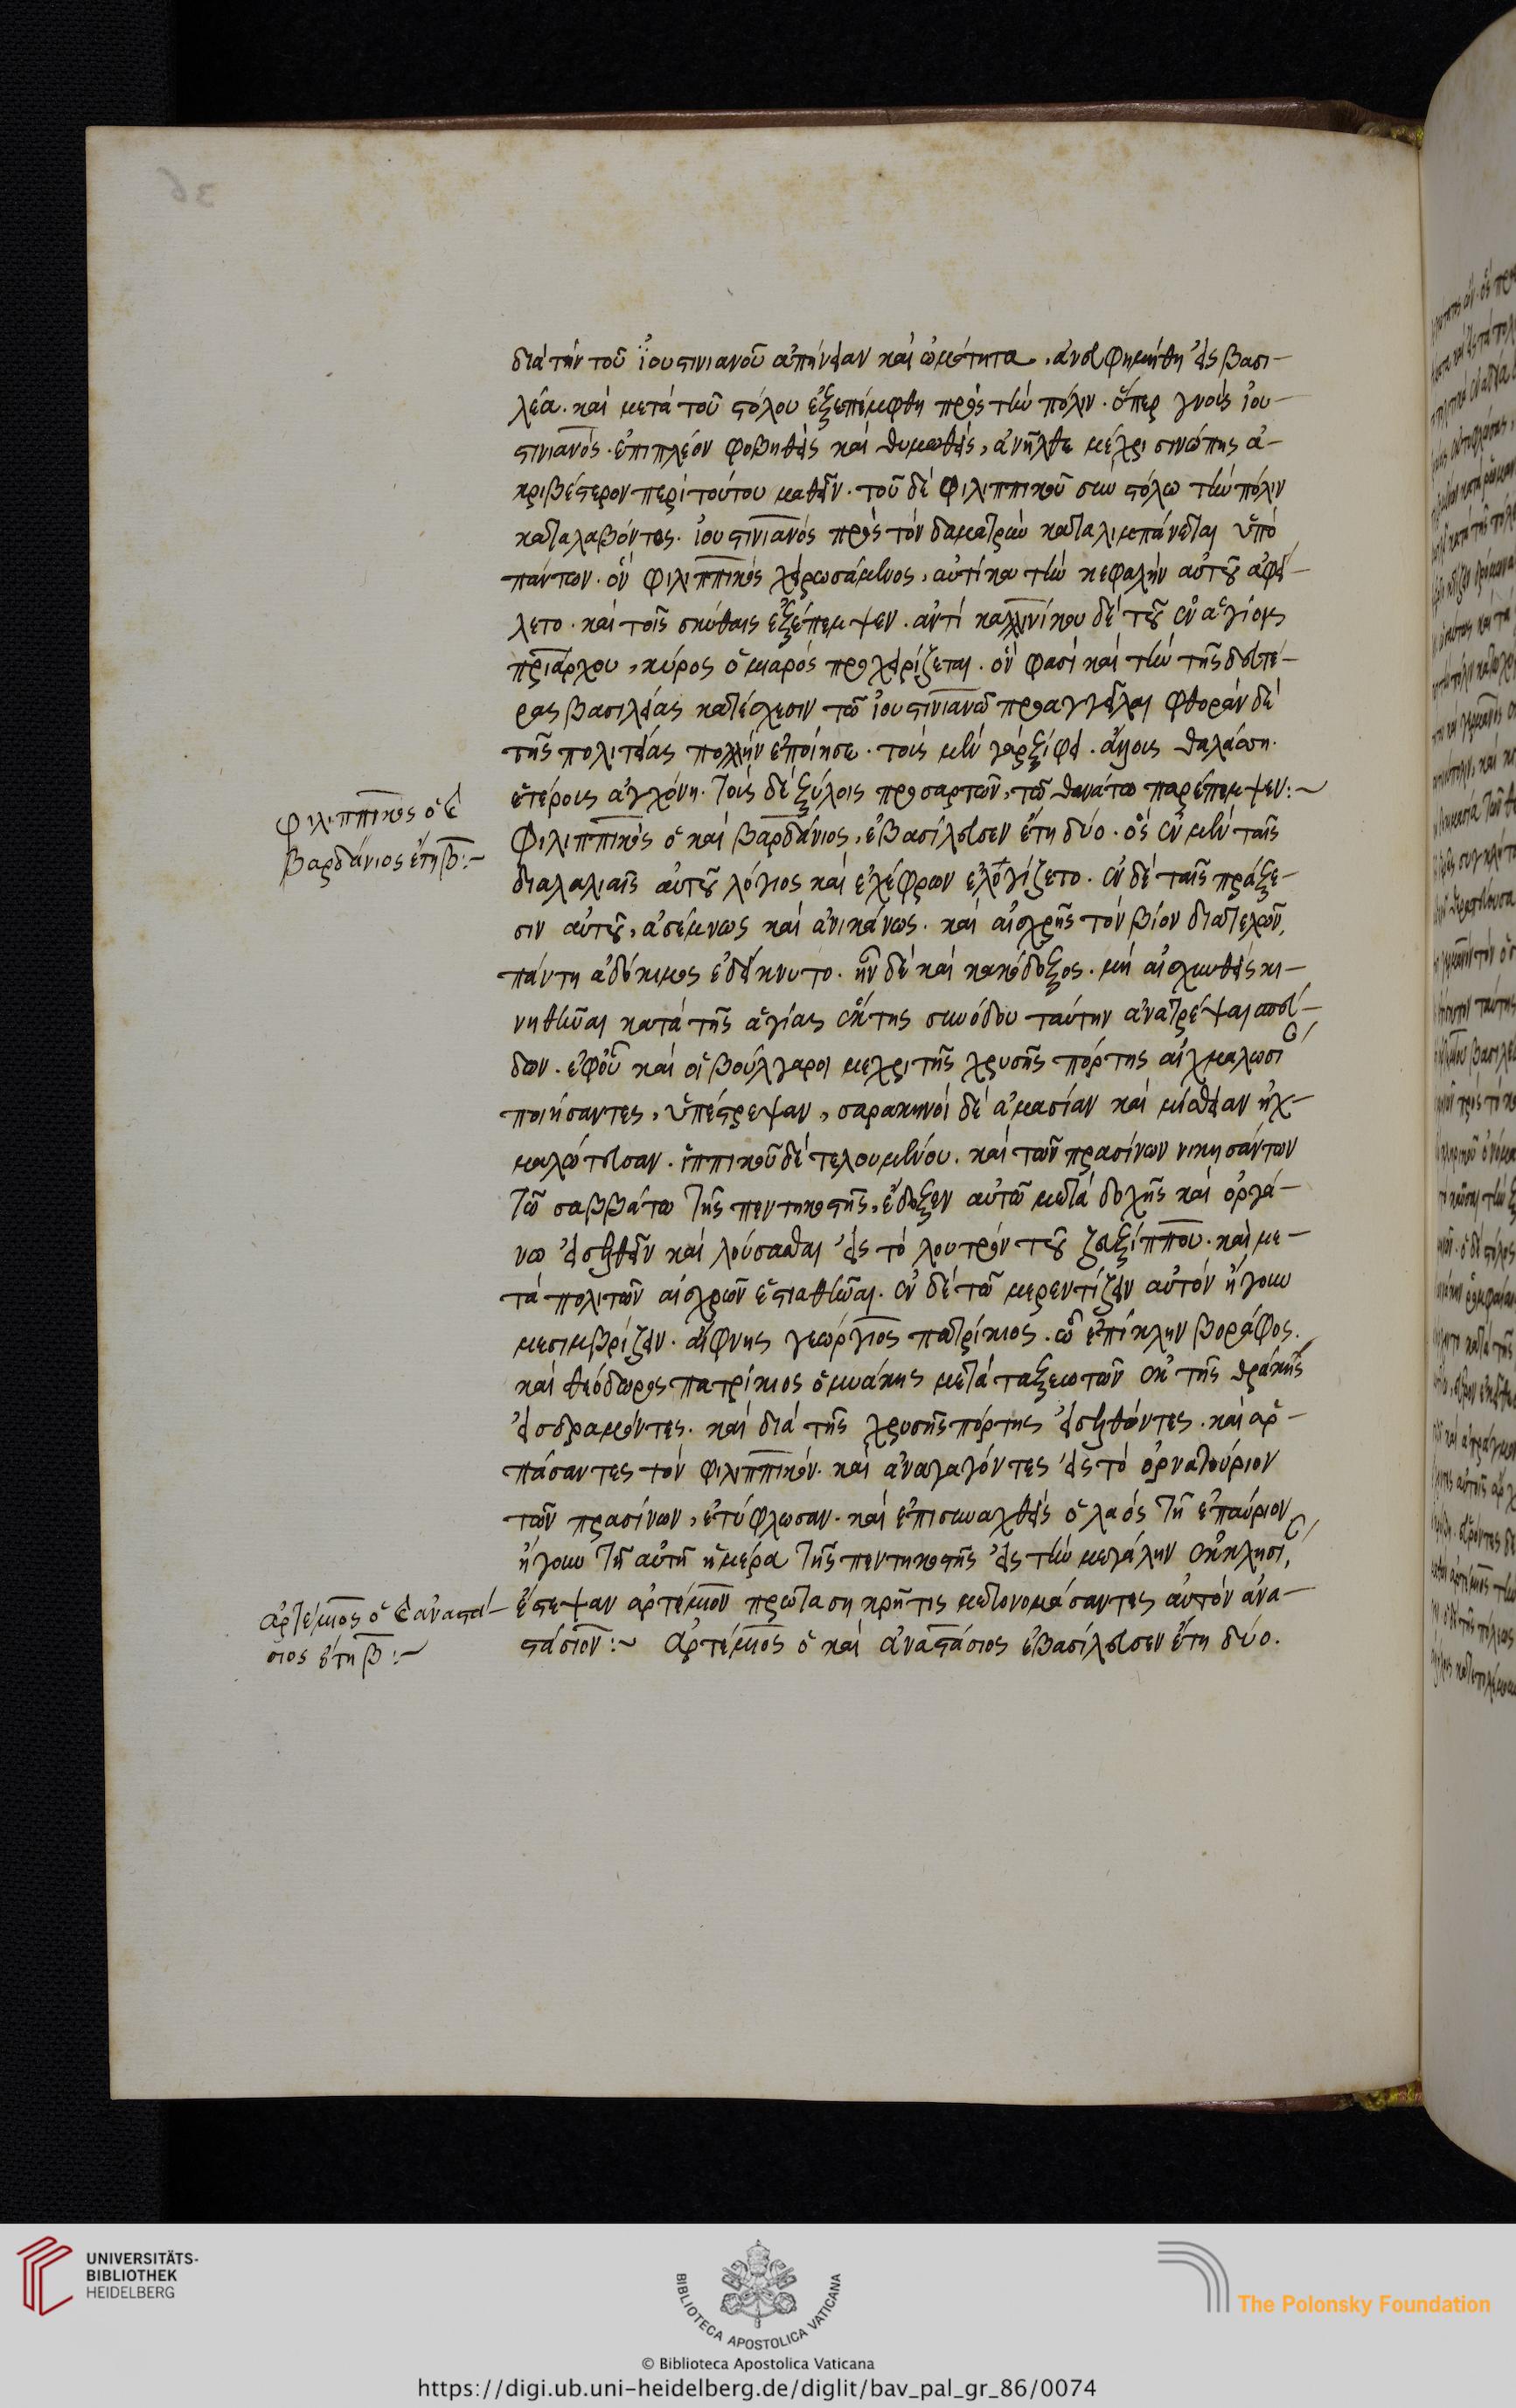 διὰ τὴν τοῦ ἰουστινιανοῦ ἀπήνειαν καὶ ὠμότητα, ἀνευφημήθη εἰς βασι-
λέα. καὶ μετὰ τοῦ στόλου ἐξεπέμφθη πρὸς τὴν πόλιν. ὅπερ γνοὺς ἰου-
στινιανός. ἐπιπλέον φοβηθεὶς καὶ θυμωθεὶς, ἀνῆλθε μέχρι σινώπης ἀ-
κριβέστερον περὶ τούτου μαθεῖν. τοῦ δὲ φιλιππικοῦ σὺν στόλω τὴν πόλιν
καταλαβόντος. ἰουστινιανὸς πρὸς τὸν δαματρὺν καταλιμπάνεται ὑπὸ
πάντων. ὃν φιλιππικὸς χειρωσάμενος, αὐτίκα τὴν κεφαλὴν αὐτοῦ ἀφεί-
λετο. καὶ τοῖς σκύθαις ἐξέπεμψεν. ἀντὶ καλλινίκου δὲ τοῦ ἐν ἁγίοις
πριάρχου, κύρος ὁ μιαρὸς προχειρίζεται. ὃν φασὶ καὶ τὴν τῆς δευτέ-
ρας βασιλείας κατάσχεσιν τῶ ἰουστινιανῶ προαγγεῖλαι φθορὰν δὲ
τῆς πολιτείας πολλὴν ἐποίησε. τοὺς μὲν γὰρ ξίφει. ἄλλους θαλάσση.
ἑτέρους ἀγχόνη. τοὺς δὲ ξύλοις προσαρτῶν, τῶ θανάτω παρέπεμψεν:~
φιλιππικὸς ὁ καὶ
βαρδάνιος ἔτη β:~
Φιλιππικὸς ὁ καὶ βαρδάνιος, ἐβασίλευσεν ἔτη δύο. ὃς ἐν μὲν ταῖς
διαλαλιαῖς αὐτοῦ λόγιος καὶ ἐχέφρων ἐλογίζετο. ἐν δὲ ταῖς πράξε-
σιν αὐτοῦ, ἀσέμνως καὶ ἀνικάνως. καὶ αἰσχρῆς τὸν βίον διατελῶν,
πάντη ἀδόκιμος ἐδείκνυτο. ἦν δὲ καὶ κακόδοξος. μὴ αἰσχυνθεὶς κι-
νηθῆναι κατὰ τῆς ἁγίας ἕκτης συνόδου ταύτην ἀνατρέψαι σπεύ-
δων. ἐφ οὗ καὶ οἱ βούλγαροι μεχρι τῆς χρυσῆς πόρτης αἰχμαλωσί
ποιήσαντες, ὑπέστρεψαν, σαρακηνοὶ δὲ ἀμασίαν καὶ μίσθειαν ἠχ-
μαλώτευσαν. ἱππικοῦ δὲ τελουμένου. καὶ τῶν πρασίνων νικησάντων
τῶ σαββάτω τῆς πεντηκοστῆς, ἔδοξεν αὐτῶ μετὰ δοχῆς καὶ ὀργά-
νω εἰσελθεῖν καὶ λούσασθαι εἰς τὸ λουτρὸν τοῦ ζευξίππου. καὶ με-
τὰ πολιτῶν αἰσχρῶν ἑστιαθῆναι. ἐν δὲ τῶ μερεντίζειν αὐτὸν ἤγουν
μεσιμβρίζειν. ἄίφνης γεώργιος πατρίκιος. ὦ ἐπίκλην βοράφος.
καὶ θεόδωρος πατρίκιος ὁ μυάκης μετὰ ταξεωτῶν ἐκ τῆς θράκης
εἰσδραμόντες. καὶ διὰ τῆς χρυσῆς πόρτης εἰσελθόντες. καὶ ἁρ-
πάσαντες τὸν φιλιππικόν. καὶ ἀναγαγόντες εἰς τὸ ὀρνατούριον
τῶν πρασίνων, ἐτύφλωσαν. καὶ ἐπισυναχθεὶς ὁ λαὸς τῆ ἐπαύριον
ἤγουν τῆ αὐτῆ ἡμέρα τῆς πεντηκοστῆς εἰς τὴν μεγάλην ἐκκλησί,
ἔστεψαν ἀρτέμιον πρωτασηκρῆτις μετονομάσαντες αὐτὸν ἀνα-
ἀρτέμιος ὁ καὶ ἀναστά-
σιος ἔτη β:~
στάσιον:~ Ἀρτέμιος ὁ καὶ ἀναστάσιος ἐβασίλευσεν ἔτη δύο.
UNIVERSITÄTS-
BIBLIOTHEK
HEIDELBERG
BIBLIOTECA APOSTOLICA VATICANA
The Polonsky Foundation
© Biblioteca Apostolica Vaticana
https://digi.ub.uni-heidelberg.de/diglit/bav_pal_gr_86/0074